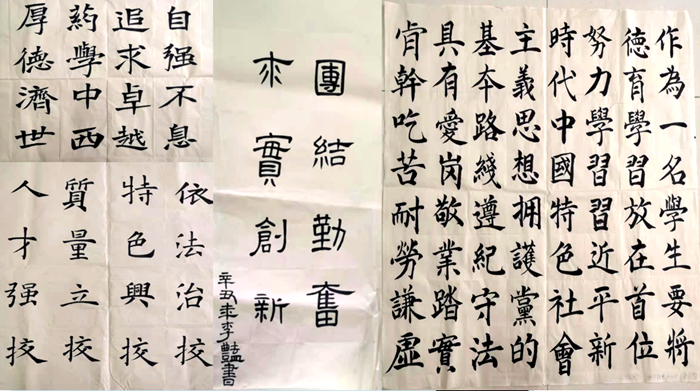 自强不息
追求卓越
葯學中西
厚德濟世
依法治校
特色興校
質量立校
人才强校
團結勤奮
求實創新
辛丑年李豔書
作為一名學生要將
德育學習放在首位
努力學習習近平新
時代中國特色社會
主義思想拥護黨的
基本路綫遵紀守法
具有愛岗敬業踏實
肯幹吃苦耐勞謙虛